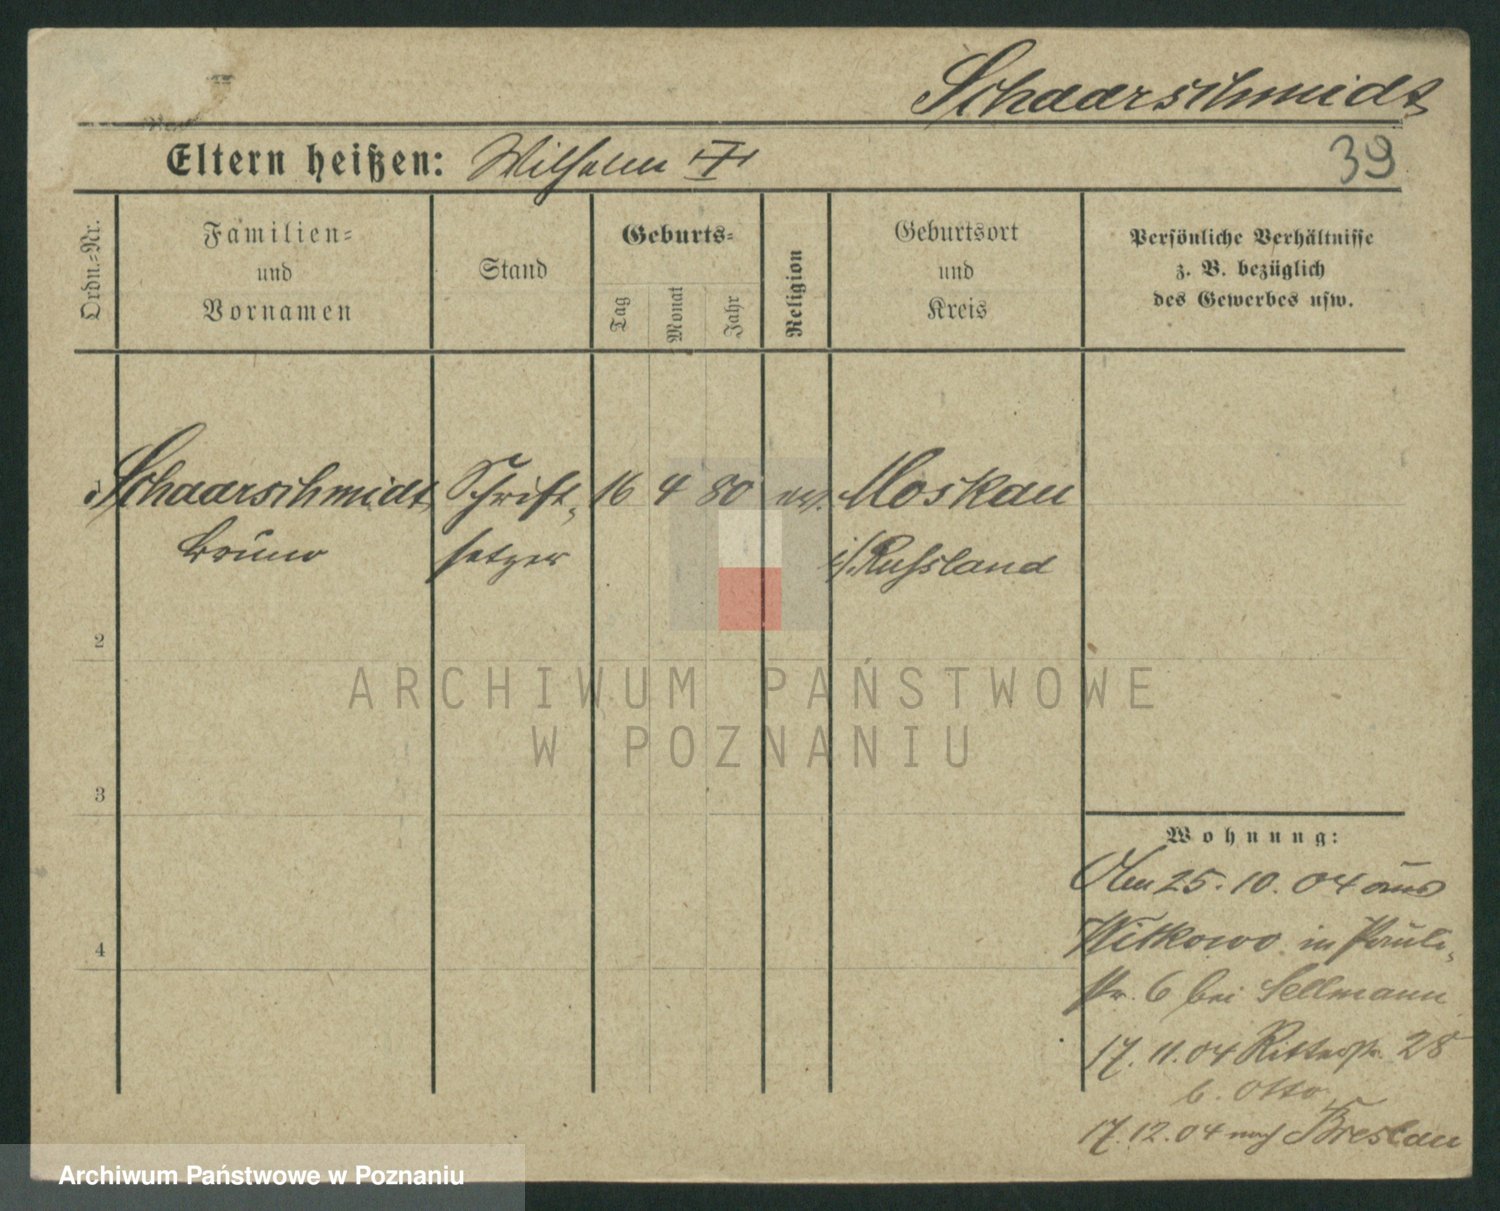 Schaarschmidt
Eltern heißen: Wilhelm
39
Ordn.-Nr.
Familien-
und
Vornamen
Stand
Geburts-
Tag
Monat
Jahr
Religion
Geburtsort
und
Kreis
Persönliche Verhältnisse
z. B. bezüglich
des Gewerbes usw.
Schaarschmidt Schrift- 16 4 80 ev. Moskau
Bruno setzer i/. Russland
2
3
4
Wohnung:
Am 25.10.04 aus
Witkowo in Pauli-
str. 6 bei Sellmann
17.11.04 Ritterstr. 28
b. Otto
17.12.04 nach Breslau
ARCHIWUM PAŃSTWOWE
W POZNANIU
Archiwum Państwowe w Poznaniu